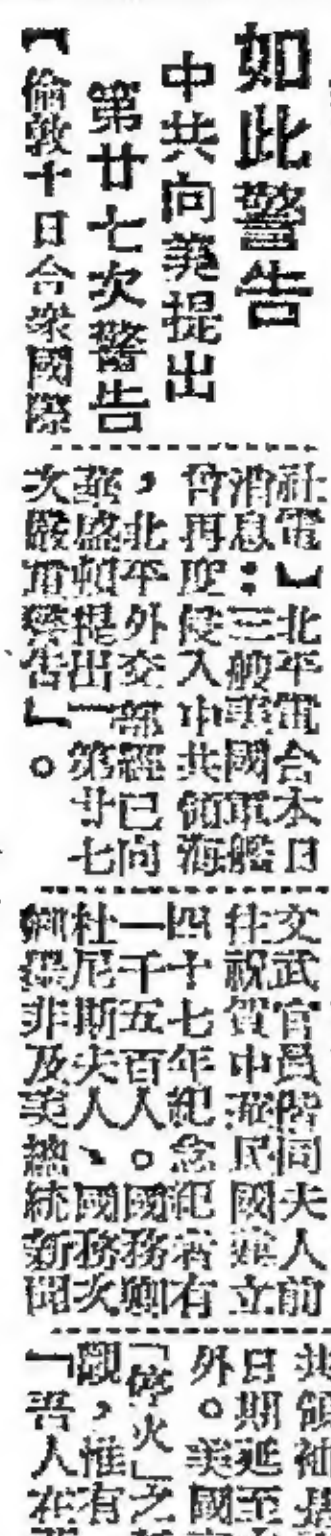 如此警告
中共向美提出
第廿七次警告
【倫敦十日合衆國際
社電】北平電台本日
消息：三艘美國軍艦
曾再度侵入中共領海
，北平外交部經已向
華盛頓提出「第廿七
次嚴重警告」。
交武官員偕同夫人前
往祝賀中華民國建立
四十七年紀念紀者有
一千五百人。國務卿
杜尼斯夫人、國務次
卿
非及美總統新聞
共領袖
日期延至
外。美國
「停火」之
觀，惟有
「吾人在